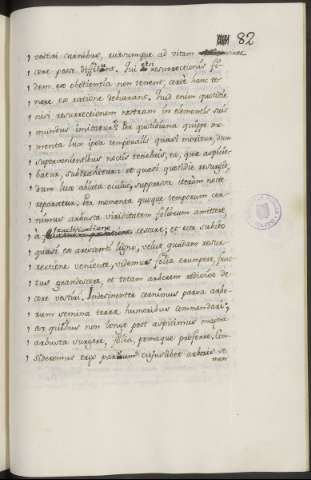 82
vestiri carnibus, rursumque ad vitam
core posse diffidens. Qui etsi resurrectionis fi-
dem ex obedientia non tenent, certe hanc te-
nere ex ratione debuerant. Quid enim quotidie
nisi resurrectionem nostram in elementis suis
mundus imitatur? Per quotidiana quippe mo-
menta lux ipsa temporalis quasi moritur, dum
supervenientibus noctis tenebris, ea, quæ aspicie-
batur, subtrahitur: et quasi quotidie resurgit,
dum lux ablata oculis, suppressa iterum nocte
reparatur. Per momenta quoque temporum cer-
nimus arbusta viriditatem foliorum amittere,
à fructificatione cessare, et ecce subito
quasi ex arescenti ligno, velut quadam resur-
rectione veniente, videmus folia erumpere, fruc-
tus grandescere, et totam arborem redivivo de-
core vestiri. Indesinenter cernimus parva arbo-
rum semina terræ humoribus commendari,
ex quibus non longe post aspicimus magna
arbusta surgere, folia, pomaque proferre. Con-
sideremus ergo parvum cujuslibet arboris se-
men